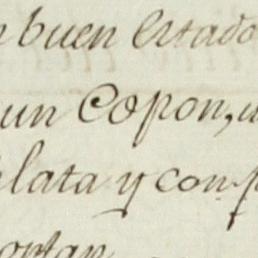 buen estado
un Copon,
lata y con